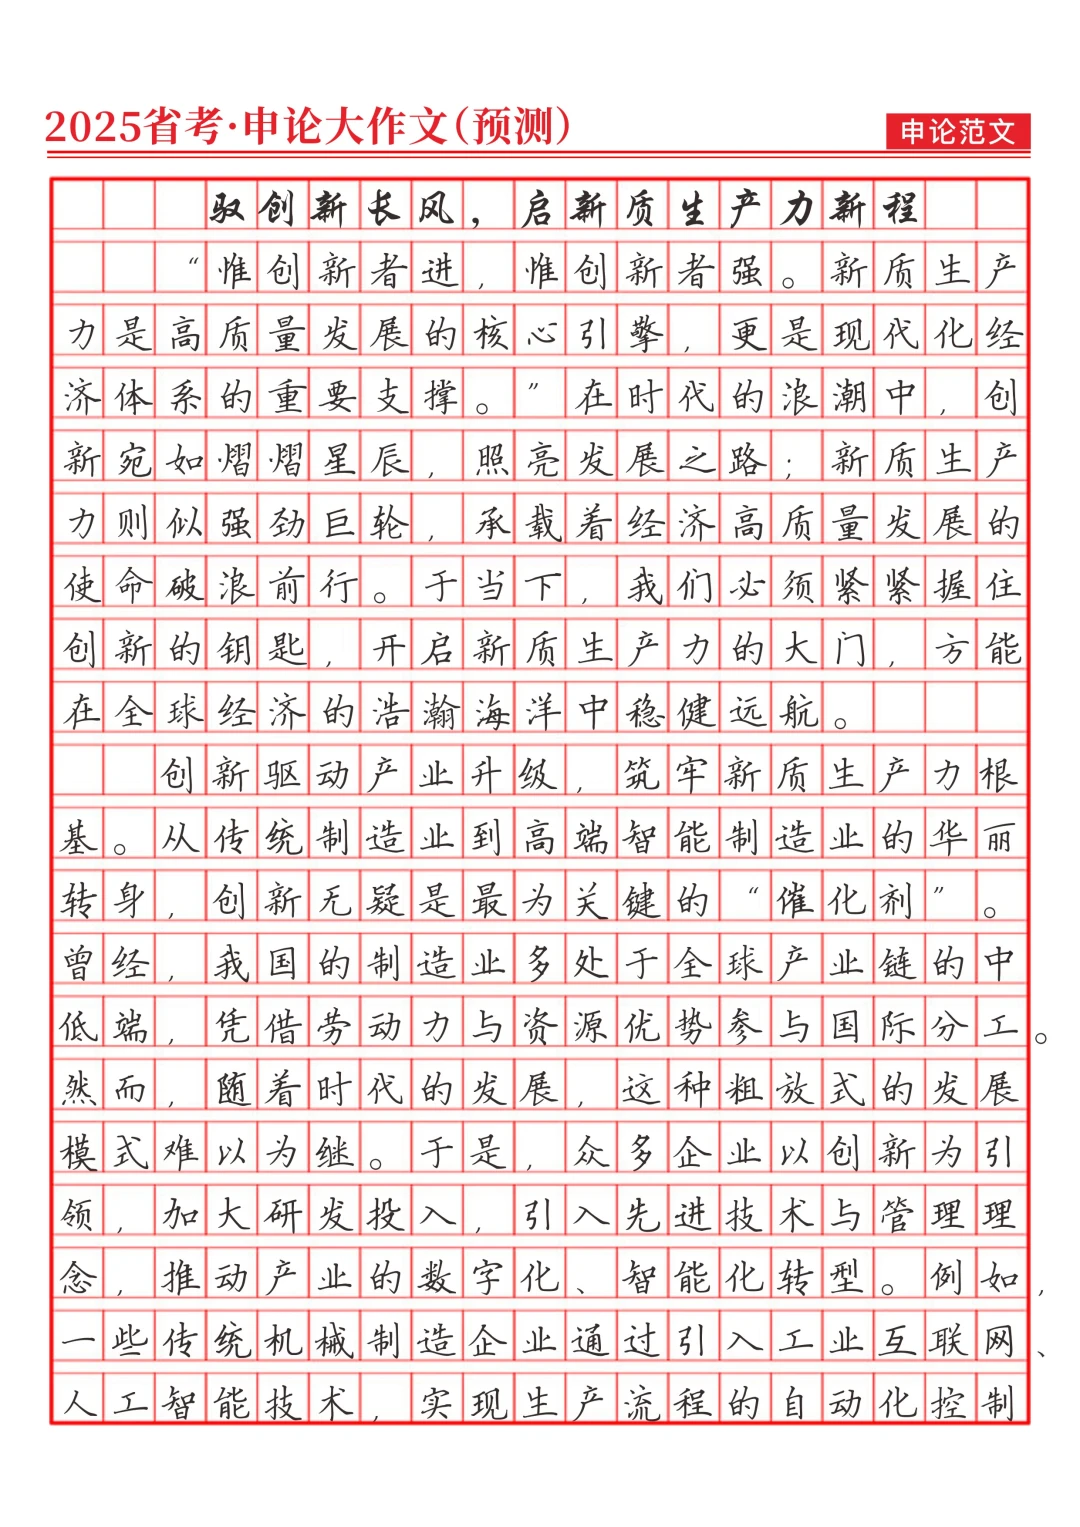 2025省考·申论大作文(预测)
申论范文
驭创新长风，启新质生产力新程
“惟创新者进，惟创新者强。新质生产
力是高质量发展的核心引擎，更是现代化经
济体系的重要支撑。”在时代的浪潮中，创
新宛如熠熠星辰，照亮发展之路；新质生产
力则似强劲巨轮，承载着经济高质量发展的
使命破浪前行。于当下，我们必须紧紧握住
创新的钥匙，开启新质生产力的大门，方能
在全球经济的浩瀚海洋中稳健远航。
创新驱动产业升级，筑牢新质生产力根
基。从传统制造业到高端智能制造业的华丽
转身，创新无疑是最为关键的“催化剂”。
曾经，我国的制造业多处于全球产业链的中
低端，凭借劳动力与资源优势参与国际分工。
然而，随着时代的发展，这种粗放式的发展
模式难以为继。于是，众多企业以创新为引
领，加大研发投入，引入先进技术与管理理
念，推动产业的数字化、智能化转型。例如，
一些传统机械制造企业通过引入工业互联网、
人工智能技术，实现生产流程的自动化控制